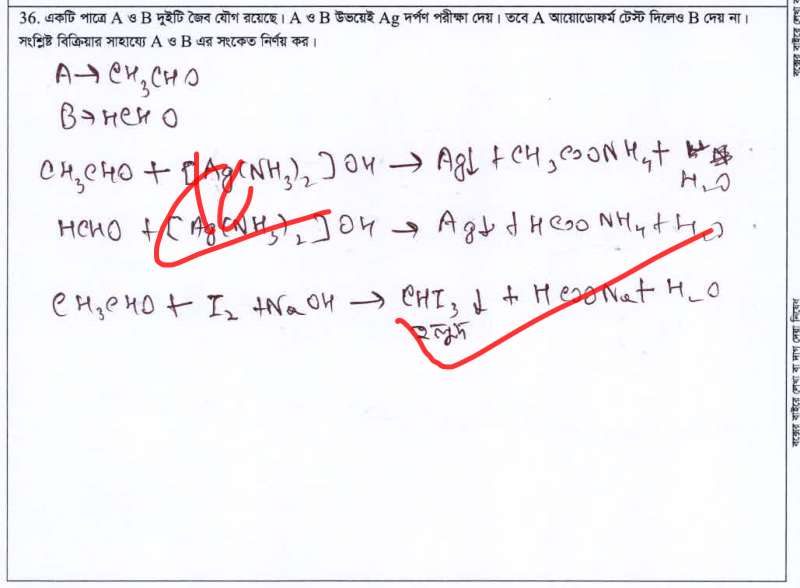 36. একটি পাত্রে A ও B দুইটি জৈব যৌগ রয়েছে। A ও B উভয়েই Ag দর্পণ পরীক্ষা দেয়। তবে A আয়োডোফর্ম টেস্ট দিলেও B দেয় না।
সংশ্লিষ্ট বিক্রিয়ার সাহায্যে A ও B এর সংকেত নির্ণয় কর।
A→ CH₃CHO
B→ HCHO
CH₃CHO + [Ag(NH₃)₂]OH → Ag↓ + CH₃COONH₄ + H₂O
HCHO + [Ag(NH₃)₂]OH → Ag↓ + HCOONH₄ + H₂O
CH₃CHO + I₂ + NaOH → CHI₃↓ + HCOONa + H₂O
হলুদ